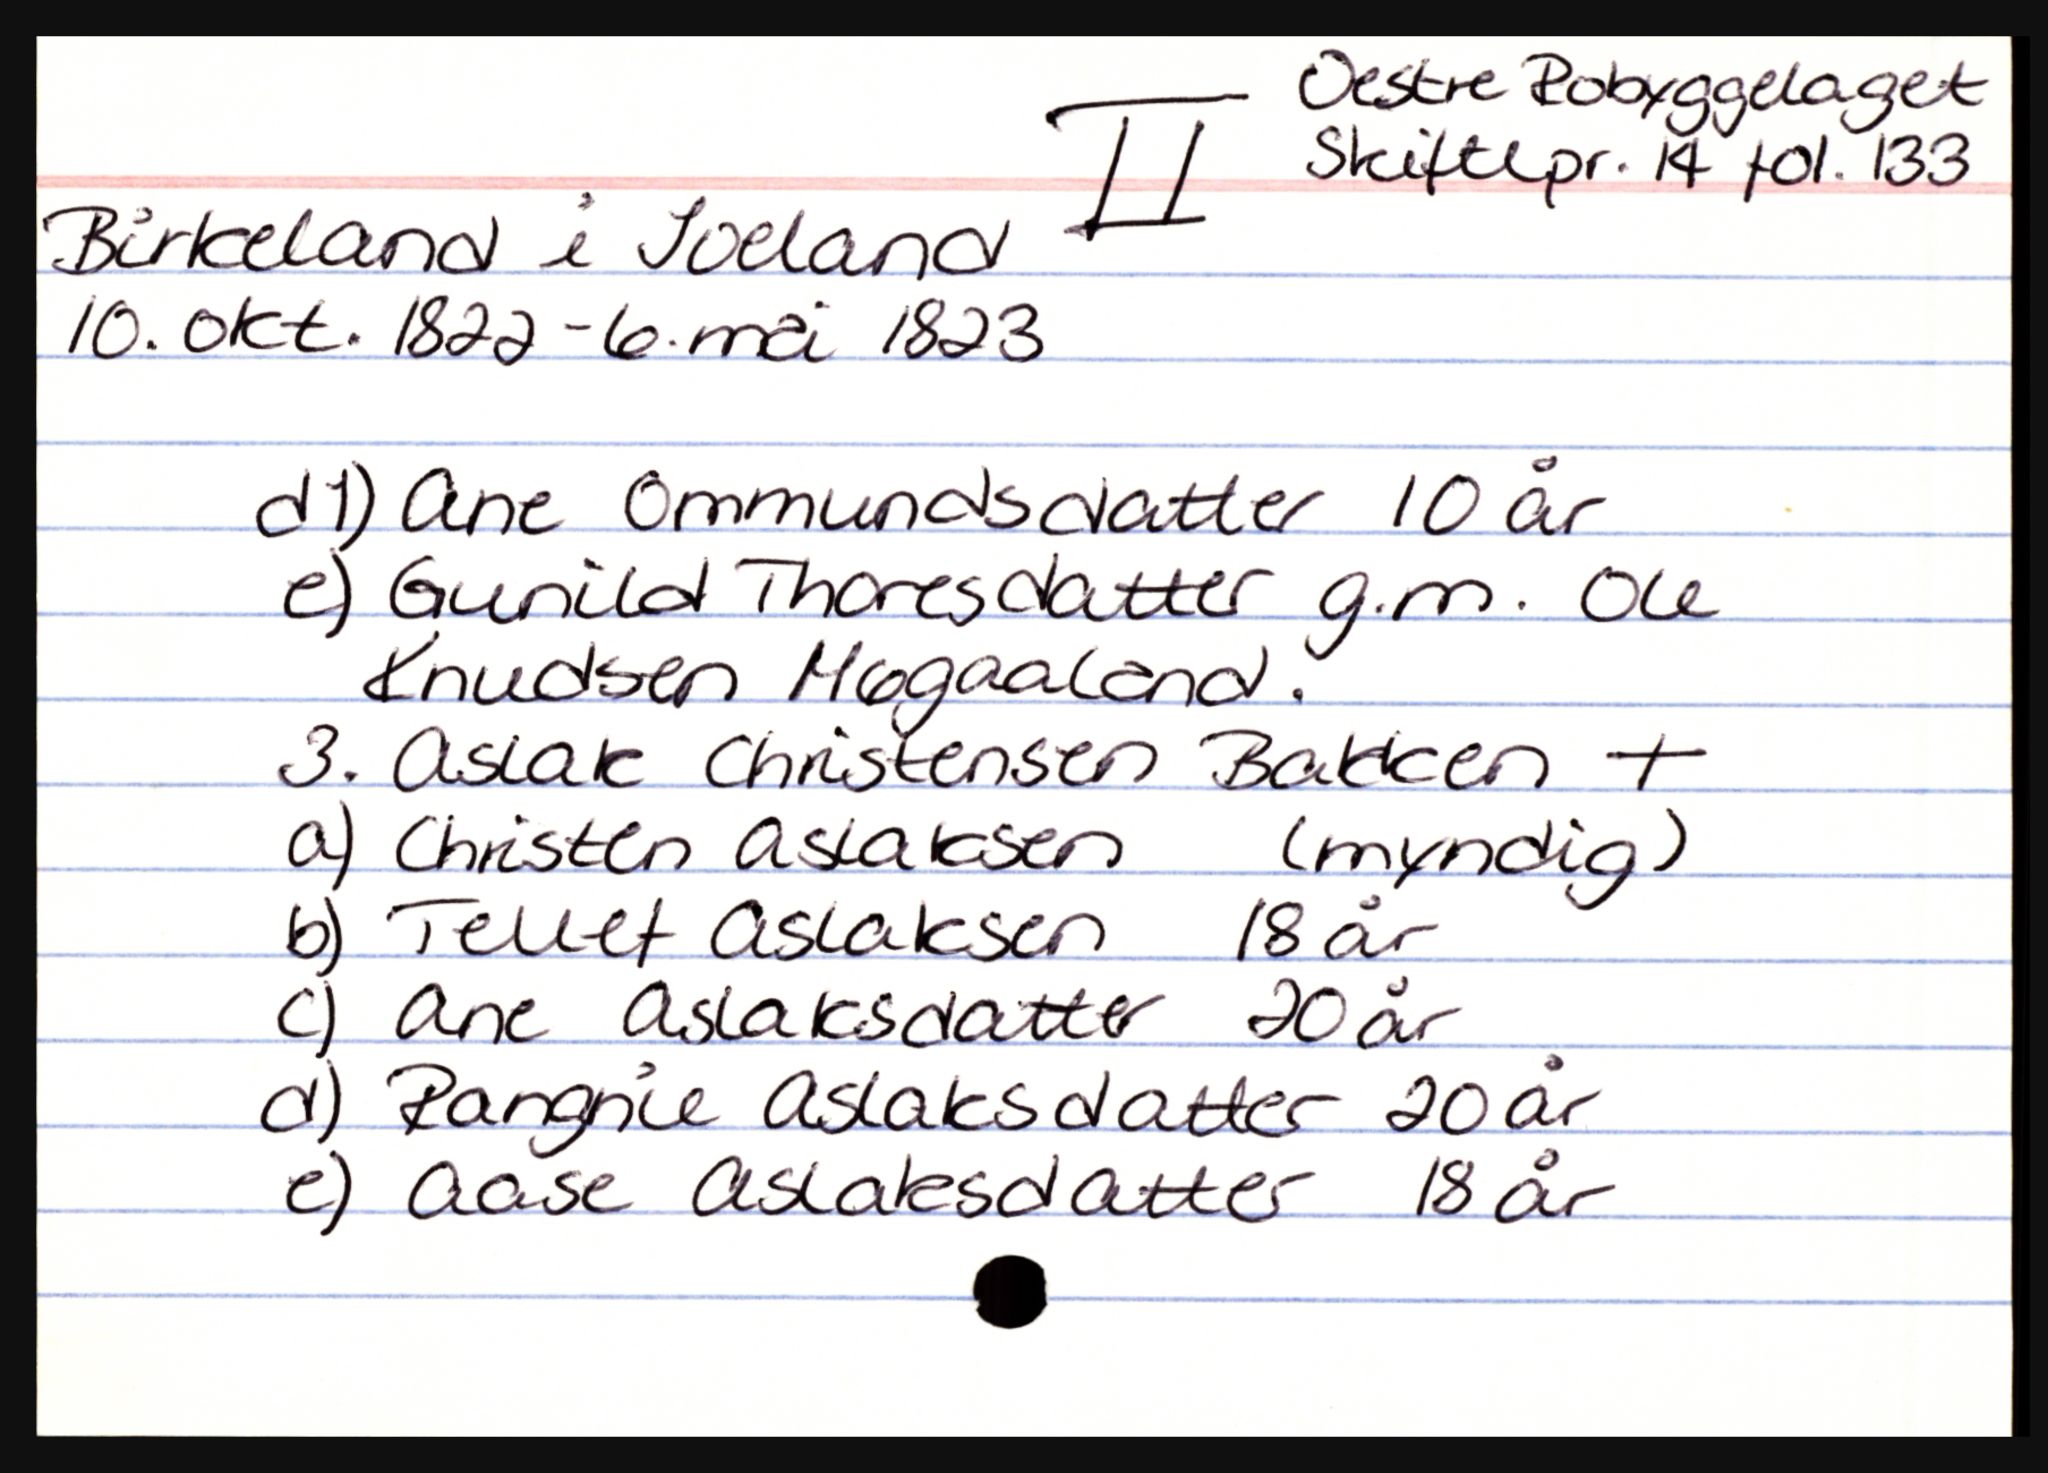 Oestre Robyggelaget
Skiftepr. 14 fol. 133
II
Birkeland i Iveland
10. okt. 1822 - 6. mai 1823
d1) Ane Ommundsdatter 10 år
e) Gunild Thoresdatter g.m. Ole
Knudsen Møgaaland.
3. Aslak Christensen Bakken +
a) Christen Aslaksen (myndig)
b) Tellef Aslaksen 18 år
c) Ane Aslaksdatter 20 år
d) Rangnie Aslaksdatter 20 år
e) Aase Aslaksdatter 18 år